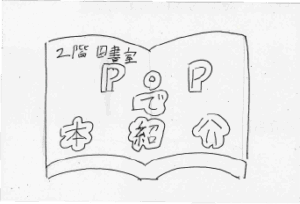 2階 図書室
P O P
で
本 紹 介